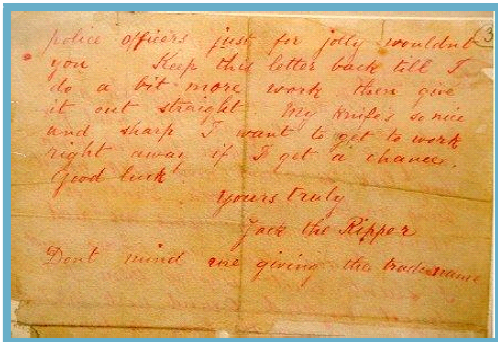 3
police officers just for jolly wouldnt
you Keep this letter back till I
do a bit more work then give
it out straight My knife's so nice
and sharp I want to get to work
right away if I get a chance.
Good luck
Yours truly
Jack the Ripper
Dont mind me giving the trade name